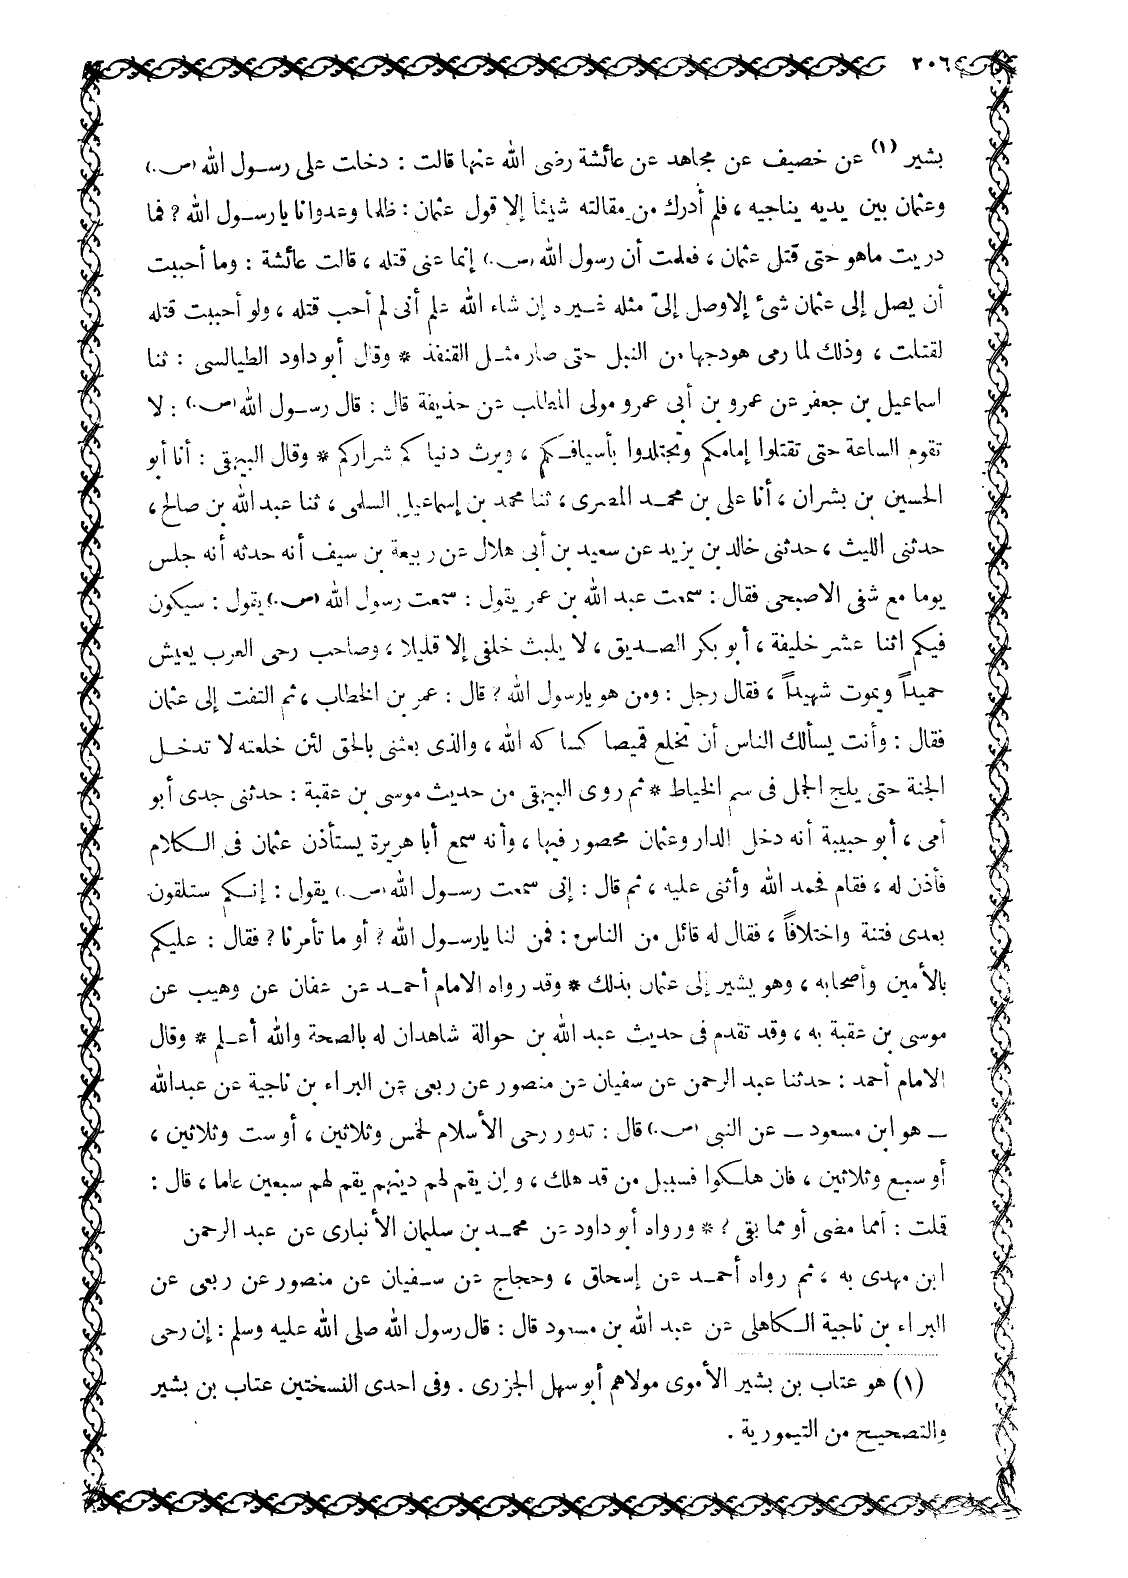 ٢٠٦
بشير (١) عن خصيف عن مجاهد عن عائشة رضى الله عنها قالت : دخات على رسول الله (ص.)
وعثمان بين يديه يناجيه ، فلم أدرك من مقالته شيئاً إلا قول عثمان : ظلما وعدوانا يارسول الله ؟ فما
دريت ماهو حتى قتل عثمان ، فعلمت أن رسول الله (ص.) إنما عنى قتله ، قالت عائشة : وما أحببت
أن يصل إلى عثمان شئ إلاوصل إلىّ مثله غيره إن شاء الله علم أنى لم أحب قتله ، ولو أحببت قتله
لقتلت ، وذلك لما رمى هودجها من النبل حتى صار مثل القنفذ * وقال أبو داود الطيالسى : ثنا
اسماعيل بن جعفر عن عمرو بن أبى عمرو مولى المطلب عن حذيفة قال : قال رسول الله (ص.) : لا
تقوم الساعة حتى تقتلوا إمامكم وتجتلدوا بأسيافكم ، ويرث دنياكم شراركم * وقال البيهقى : أنا أبو
الحسين بن بشران ، أنا على بن محمد المصرى ، ثنا محمد بن إسماعيل السلمى ، ثنا عبد الله بن صالح ،
حدثنى الليث ، حدثنى خالد بن يزيد عن سعيد بن أبى هلال عن ربيعة بن سيف أنه حدثه أنه جلس
يوما مع شفى الاصبحى فقال : سمعت عبد الله بن عمر يقول : سمعت رسول الله (ص.) يقول : سيكون
فيكم اثنا عشر خليفة ، أبو بكر الصديق ، لا يلبث خلفى إلا قليلا ، وصاحب رحى العرب يعيش
حميداً ويموت شهيداً ، فقال رجل : ومن هو يارسول الله ؟ قال : عمر بن الخطاب ، ثم التفت إلى عثمان
فقال : وأنت يسألك الناس أن تخلع قميصا كساكه الله ، والذى بعثنى بالحق لئن خلعته لا تدخل
الجنة حتى يلج الجمل فى سم الخياط * ثم روى البيهقى من حديث موسى بن عقبة : حدثنى جدى أبو
أمى ، أبو حبيبة أنه دخل الدار وعثمان محصور فيها ، وأنه سمع أبا هريرة يستأذن عثمان فى الكلام
فأذن له ، فقام فحمد الله وأثنى عليه ، ثم قال : إنى سمعت رسول الله (ص.) يقول : إنكم ستلقون
بعدى فتنة واختلافاً ، فقال له قائل من الناس : فمن لنا يارسول الله ؟ أو ما تأمرنا ؟ فقال : عليكم
بالأمين وأصحابه ، وهو يشير إلى عثمان بذلك * وقد رواه الامام أحمد عن عفان عن وهيب عن
موسى بن عقبة به ، وقد تقدم فى حديث عبد الله بن حوالة شاهدان له بالصحة والله أعلم * وقال
الامام أحمد : حدثنا عبد الرحمن عن سفيان عن منصور عن ربعى عن البراء بن ناجية عن عبدالله
ــ هو ابن مسعود ــ عن النبى (ص.) قال : تدور رحى الأسلام لخمس وثلاثين ، أوست وثلاثين ،
أو سبع وثلاثين ، فان هلكوا فسبيل من قد هلك ، وإن يقم لهم دينهم يقم لهم سبعين عاما ، قال :
قلت : أمما مضى أو مما بقى ؟ * ورواه أبو داود عن محمد بن سليمان الأنبارى عن عبد الرحمن
ابن مهدى به ، ثم رواه أحمد عن إسحاق ، وحجاج عن سفيان عن منصور عن ربعى عن
البراء بن ناجية الكاهلى عن عبد الله بن مسعود قال : قال رسول الله صلى الله عليه وسلم : إن رحى
(١) هو عتاب بن بشير الأموى مولاهم أبوسهل الجزرى . وفى احدى النسختين عتاب بن بشير
والتصحيح من التيمورية .